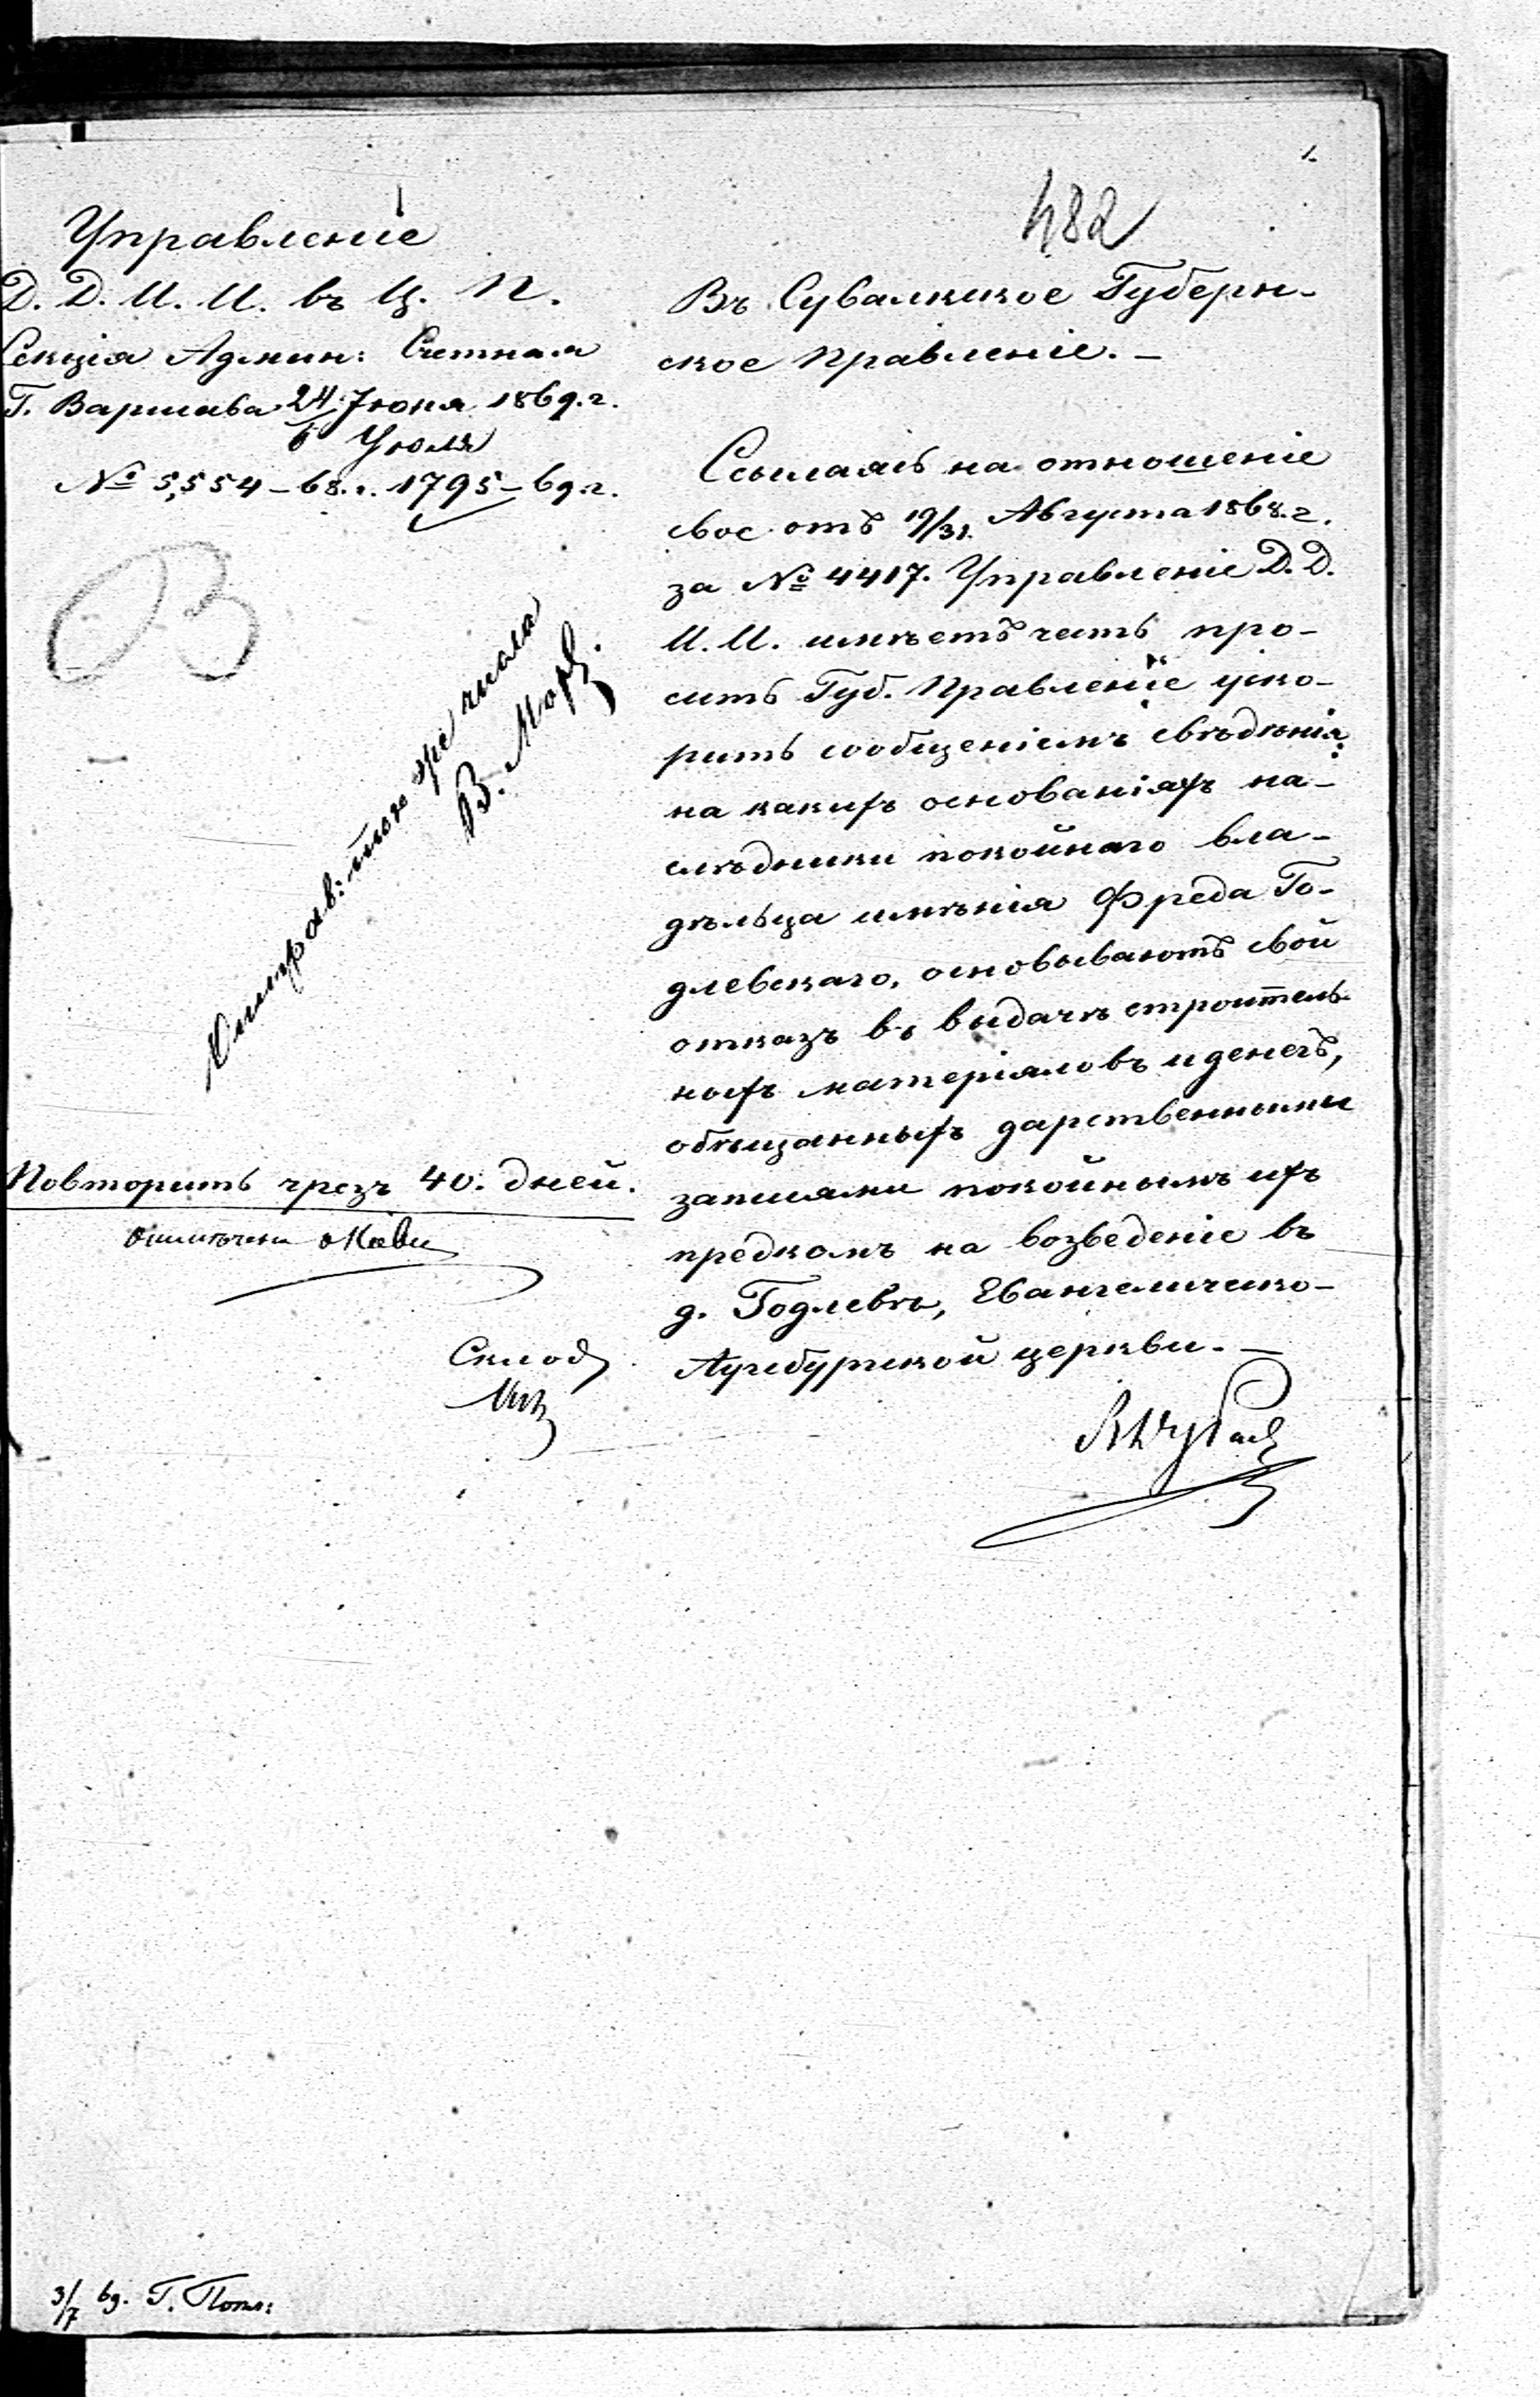 482
Управленіе
Д. Д. И. И. въ Ц. П.
Секція Админ: Счетная
Г. Варшава 24 Іюня 1869. г.
6 Іюля
№ 5,554 – 68. г. 1795 – 69. г.
Въ Сувалкское Губерн-
ское Правленіе. –
Ссылаясь на отношеніе
свое отъ 19/31. Августа 1868. г.
за № 4417. Управленіе Д. Д.
И. И. имѣетъ честь про-
сить Губ. Правленіе уско-
рить сообщеніемъ свѣдѣнія:
на какихъ основаніяхъ на-
слѣдники покойнаго вла-
дѣльца имѣнія Фреда Го-
длевскаго, основываютъ свой
отказъ въ выдачѣ строитель-
ныхъ матеріяловъ и денегъ,
обѣщанныхъ дарственными
записями покойнымъ ихъ
предкомъ на возведеніе въ
д. Годлевѣ, Евангелическо-
Аугсбургской церкви. –
числа
В. Мор
Повторить чрезъ 40. дней.
3/7 69. Г. Попл: